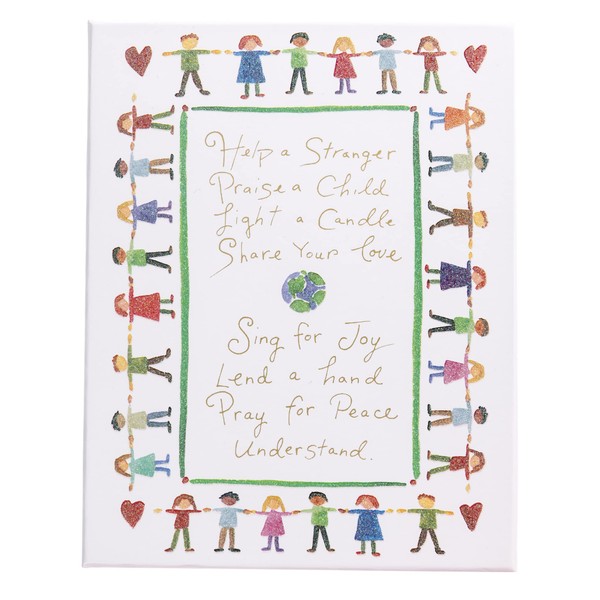 Help a Stranger
Praise a Child
Light a Candle
Share Your Love
Sing for Joy
Lend a hand
Pray for Peace
Understand.